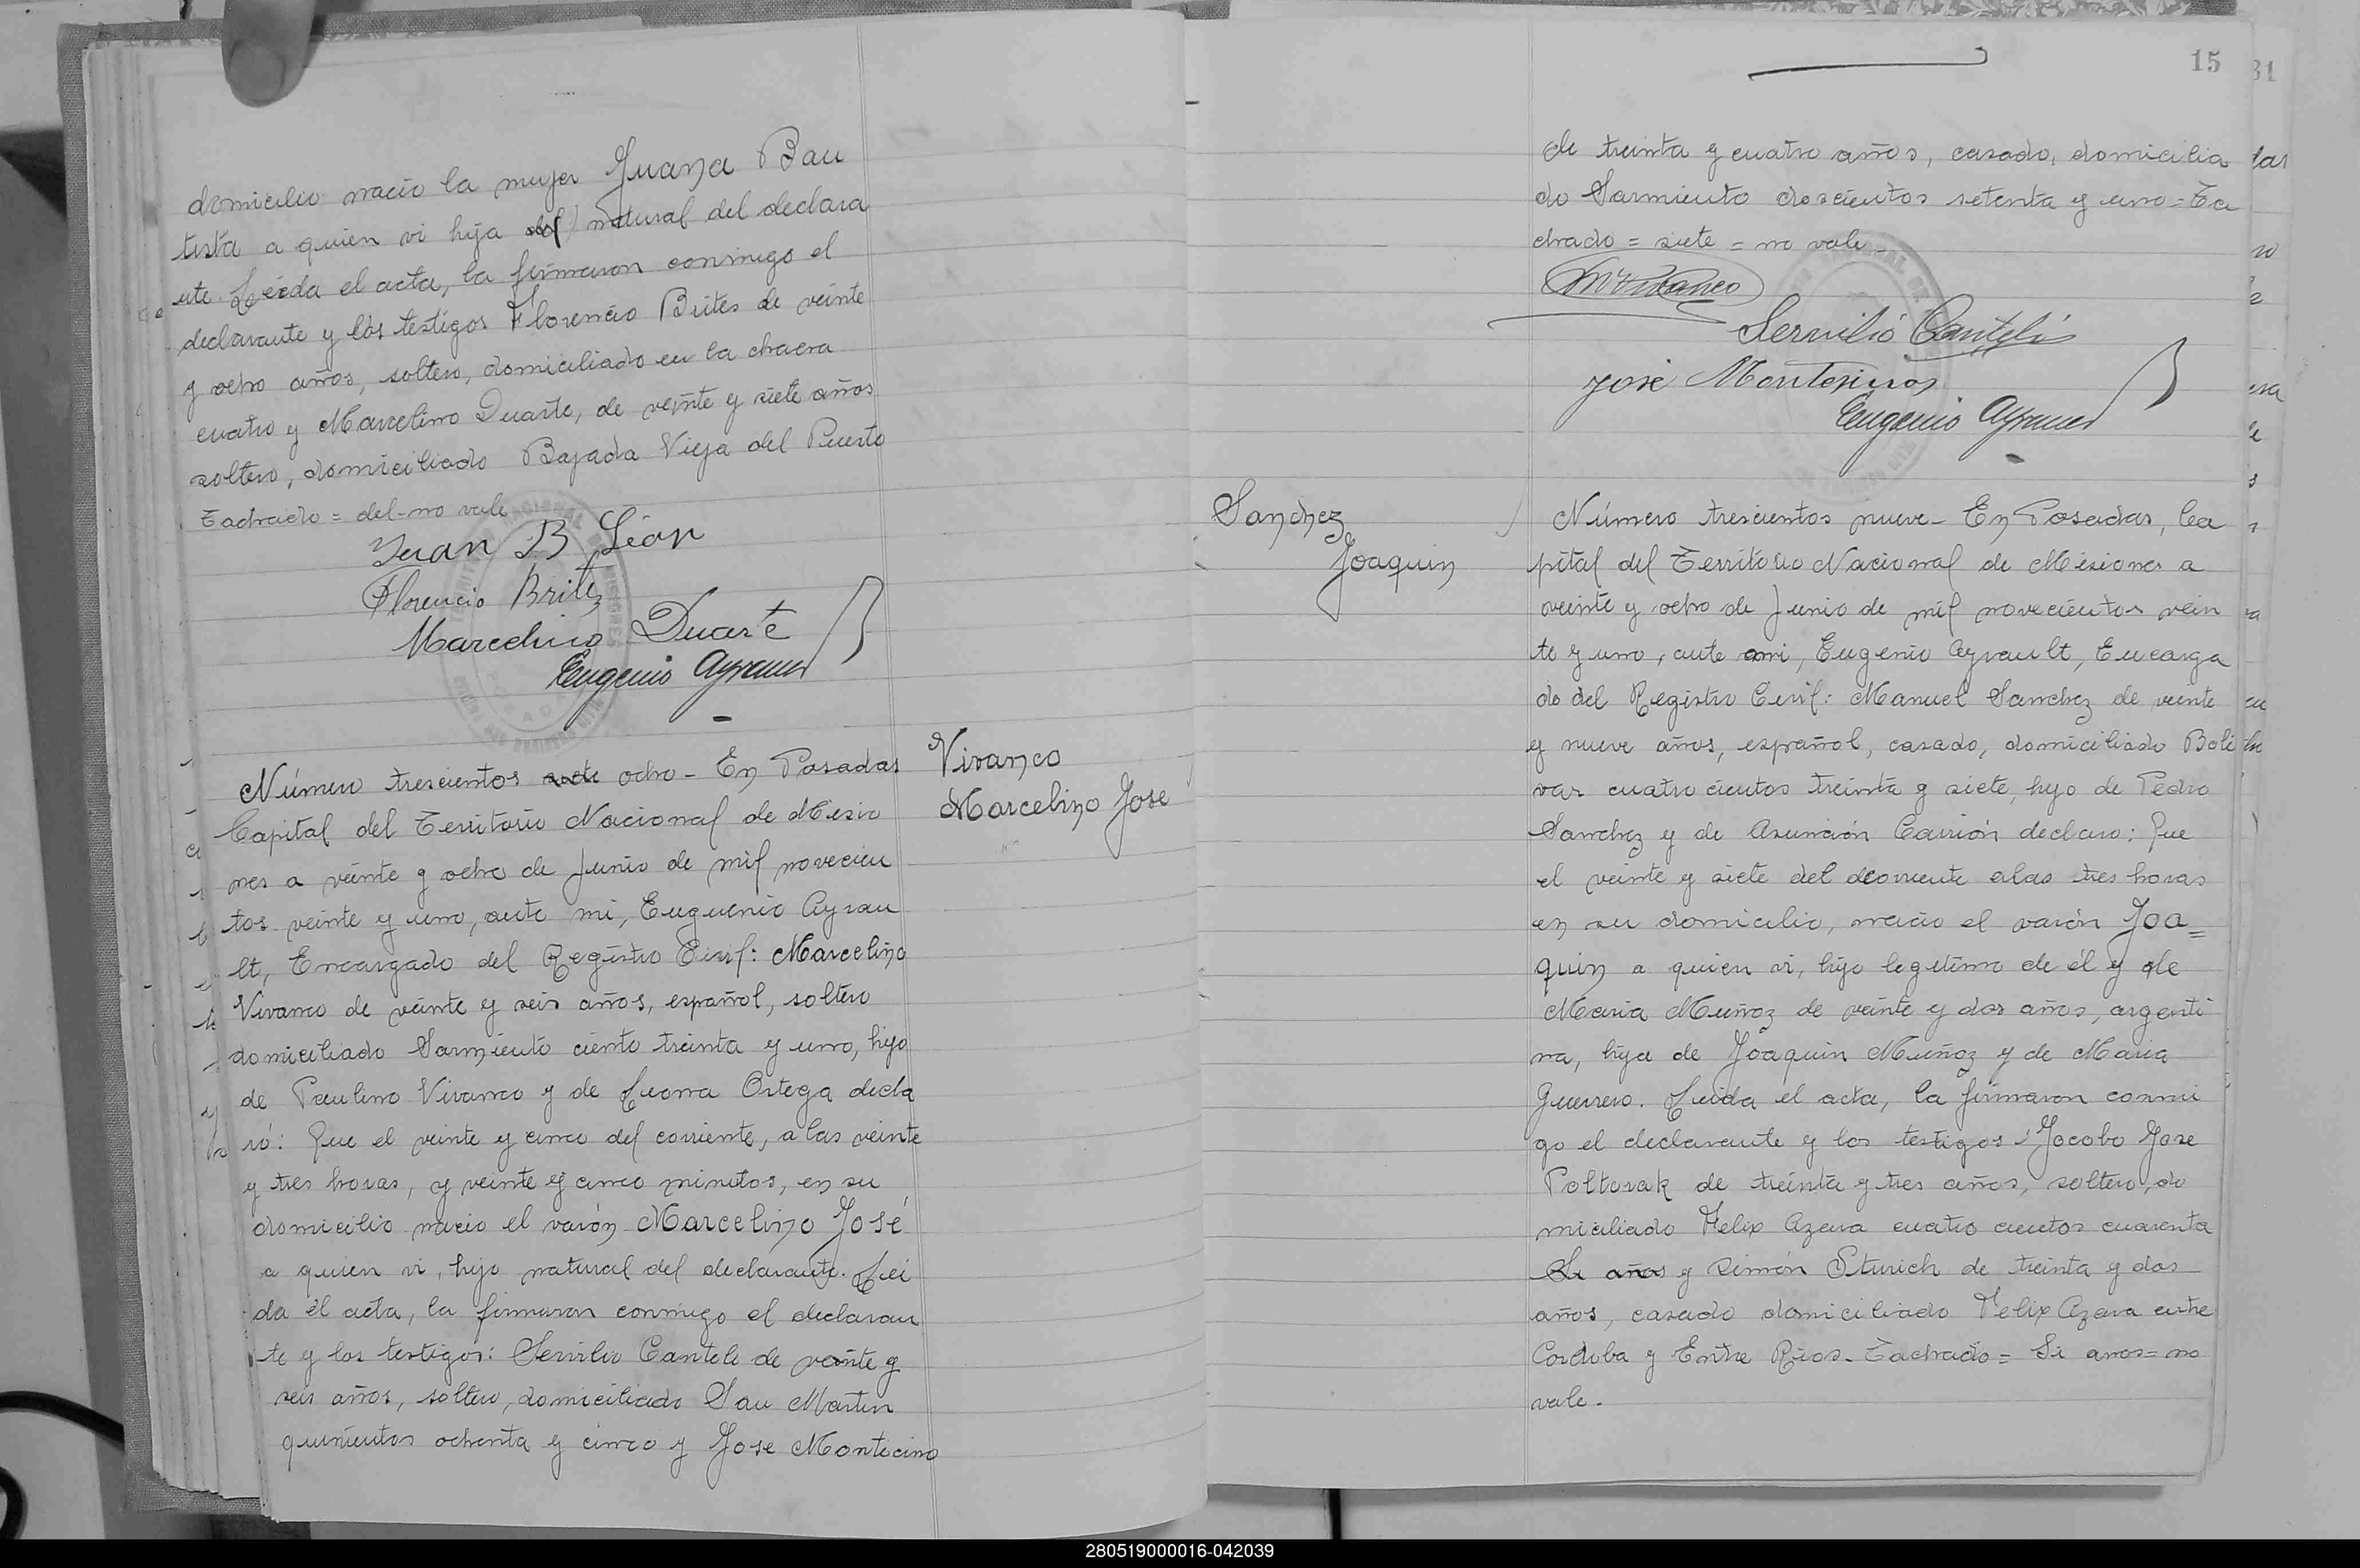 domicilio nacio la mujer Juana Bau
tista a quien vi hija del natural del declara
nte. Leida el acta, la firmaron conmigo el
declarante y los testigos Florencio Brites de veinte
y ocho años, soltero, domiciliado en la chacra
cuatro y Marcelino Duarte, de veinte y siete años
soltero, domiciliado Bajada Vieja del Puerto
Tachado = del - no vale
Juan B León
Florencio Britez
Marcelino Duarte
Eugenio Ayrault
Número trescientos siete ocho - En Posadas
Capital del Territorio Nacional de Misio
nes a veinte y ocho de Junio de mil novecien
tos veinte y uno, ante mi, Euguenio Ayrau
lt, Encargado del Registro Civil: Marcelino
Vivanco de veinte y seis años, español, soltero
domiciliado Sarmiento ciento treinta y uno, hijo
de Paulino Vivanco y de Leona Ortega decla
ró: Que el veinte y cinco del corriente, a las veinte
y tres horas, y veinte y cinco minutos, en su
domicilio nacio el varón Marcelino José
a quien vi, hijo natural del declarante. Lei
da el acta, la firmaron conmigo el declaran
te y los testigos: Servilio Canteli de veinte y
seis años, soltero, domiciliado San Martin
quinientos ochenta y cinco y Jose Montecino
Vivanco
Marcelino Jose
15
31
de treinta y cuatro años, casado, domicilia
do Sarmiento doscientos setenta y uno = Ta
chado = siete = no vale
MVivanco
Servilio Canteli
José Montesinos
Eugenio Ayrault
Sanchez
Joaquin
Número trescientos nueve - En Posadas, Ca
pital del Territorio Nacional de Misiones a
veinte y ocho de Junio de mil novecientos vein
te y uno, ante mi, Eugenio Ayrault, Encarga
do del Registro Civil: Manuel Sanchez de veinte
y nueve años, español, casado, domiciliado Boli
var cuatro cientos treinta y siete, hijo de Pedro
Sanchez y de Asunción Carrión declaro: Que
el veinte y siete del dcorriente a las tres horas
en su domicilio, nacio el varón Joa=
quin a quien vi, hijo legitimo de él y de
Maria Muñoz de veinte y dos años, argenti
na, hija de Joaquin Muñoz y de Maria
Guerrero. Leida el acta, la firmaron conmi
go el declarante y los testigos: Jocobo Jose
Poltorak de treinta y tres años, soltero, do
miciliado Felix Azara cuatro cientos cuarenta
Si años y Simón Sturich de treinta y dos
años, casado domiciliado Felix Azara entre
Cordoba y Entre Rios - Tachado = Si anos = no
vale.
280519000016-042039